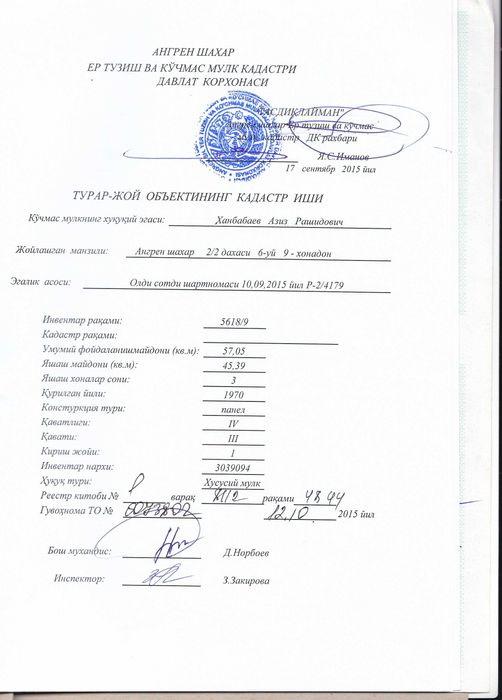 АНГРЕН ШАХАР
ЕР ТУЗИШ ВА КЎЧМАС МУЛК КАДАСТРИ
ДАВЛАТ КОРХОНАСИ
"ТАСДИҚЛАЙМАН"
Ер тузиш ва кўчмас
ДК рахбари
Я.С.Иманов
17 сентябр 2015 йил
ТУРАР-ЖОЙ ОБЪЕКТИНИНГ КАДАСТР ИШИ
Кўчмас мулкнинг хуқуқий эгаси: Ханбабаев Азиз Рашидович
Жойлашган манзили: Ангрен шахар 2/2 дахаси 6-уй 9 - хонадон
Эгалик асоси: Олди сотди шартномаси 10,09,2015 йил Р-2/4179
Инвентар рақами: 5618/9
Кадастр рақами:
Умумий фойдаланишмайдони (кв.м): 57,05
Яшаш майдони (кв.м): 45,39
Яшаш хоналар сони: 3
Қурилган йили: 1970
Констуркция тури: панел
Қаватлиги: IV
Қавати: III
Кириш жойи: 1
Инвентар нархи: 3039094
Ҳуқуқ тури: Хусусий мулк
Реестр китоби № варақ рақами
Гувохнома ТО № 12,10 2015 йил
Бош мухандис: Д.Норбоев
Инспектор: З.Закирова